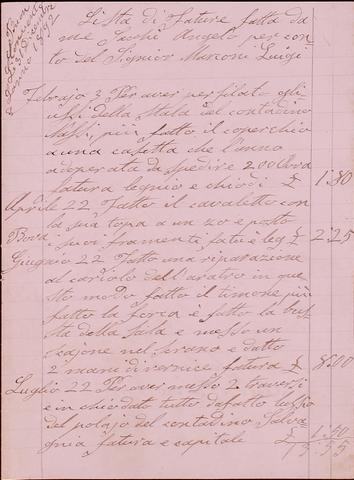 Lista di fature fatta da
me Angelo per con
to del Signior Marconi Luigi
Febrajo 3 Per aver perfilato gli
ussi della stala del contadino
più fatto il coperchio
a una casetta che l'anno
adoperata da spedire 200 Uova
fatura legnio e chiodi £ 1:80
Aprile 22 Fatto il cavaletto con
la sua topa a un zo e posto
Bova i suoi framenti fatu e leg £ 2:25
Giugnio 22 Fatto una riparazione
al cariolo dell'aratro in que
sto modo fatto il timone più
fatto la forca è fatto la
sta della sala e messo un
nel e datto
2 mani di vernice fatura £ 8:00
Luglio 22 Per aver messo 2 traversi
e in chiodato tutto dafatto l'ussio
del polajo del contadino Salva
gnia fatura e capitale £ 1.50
13.55